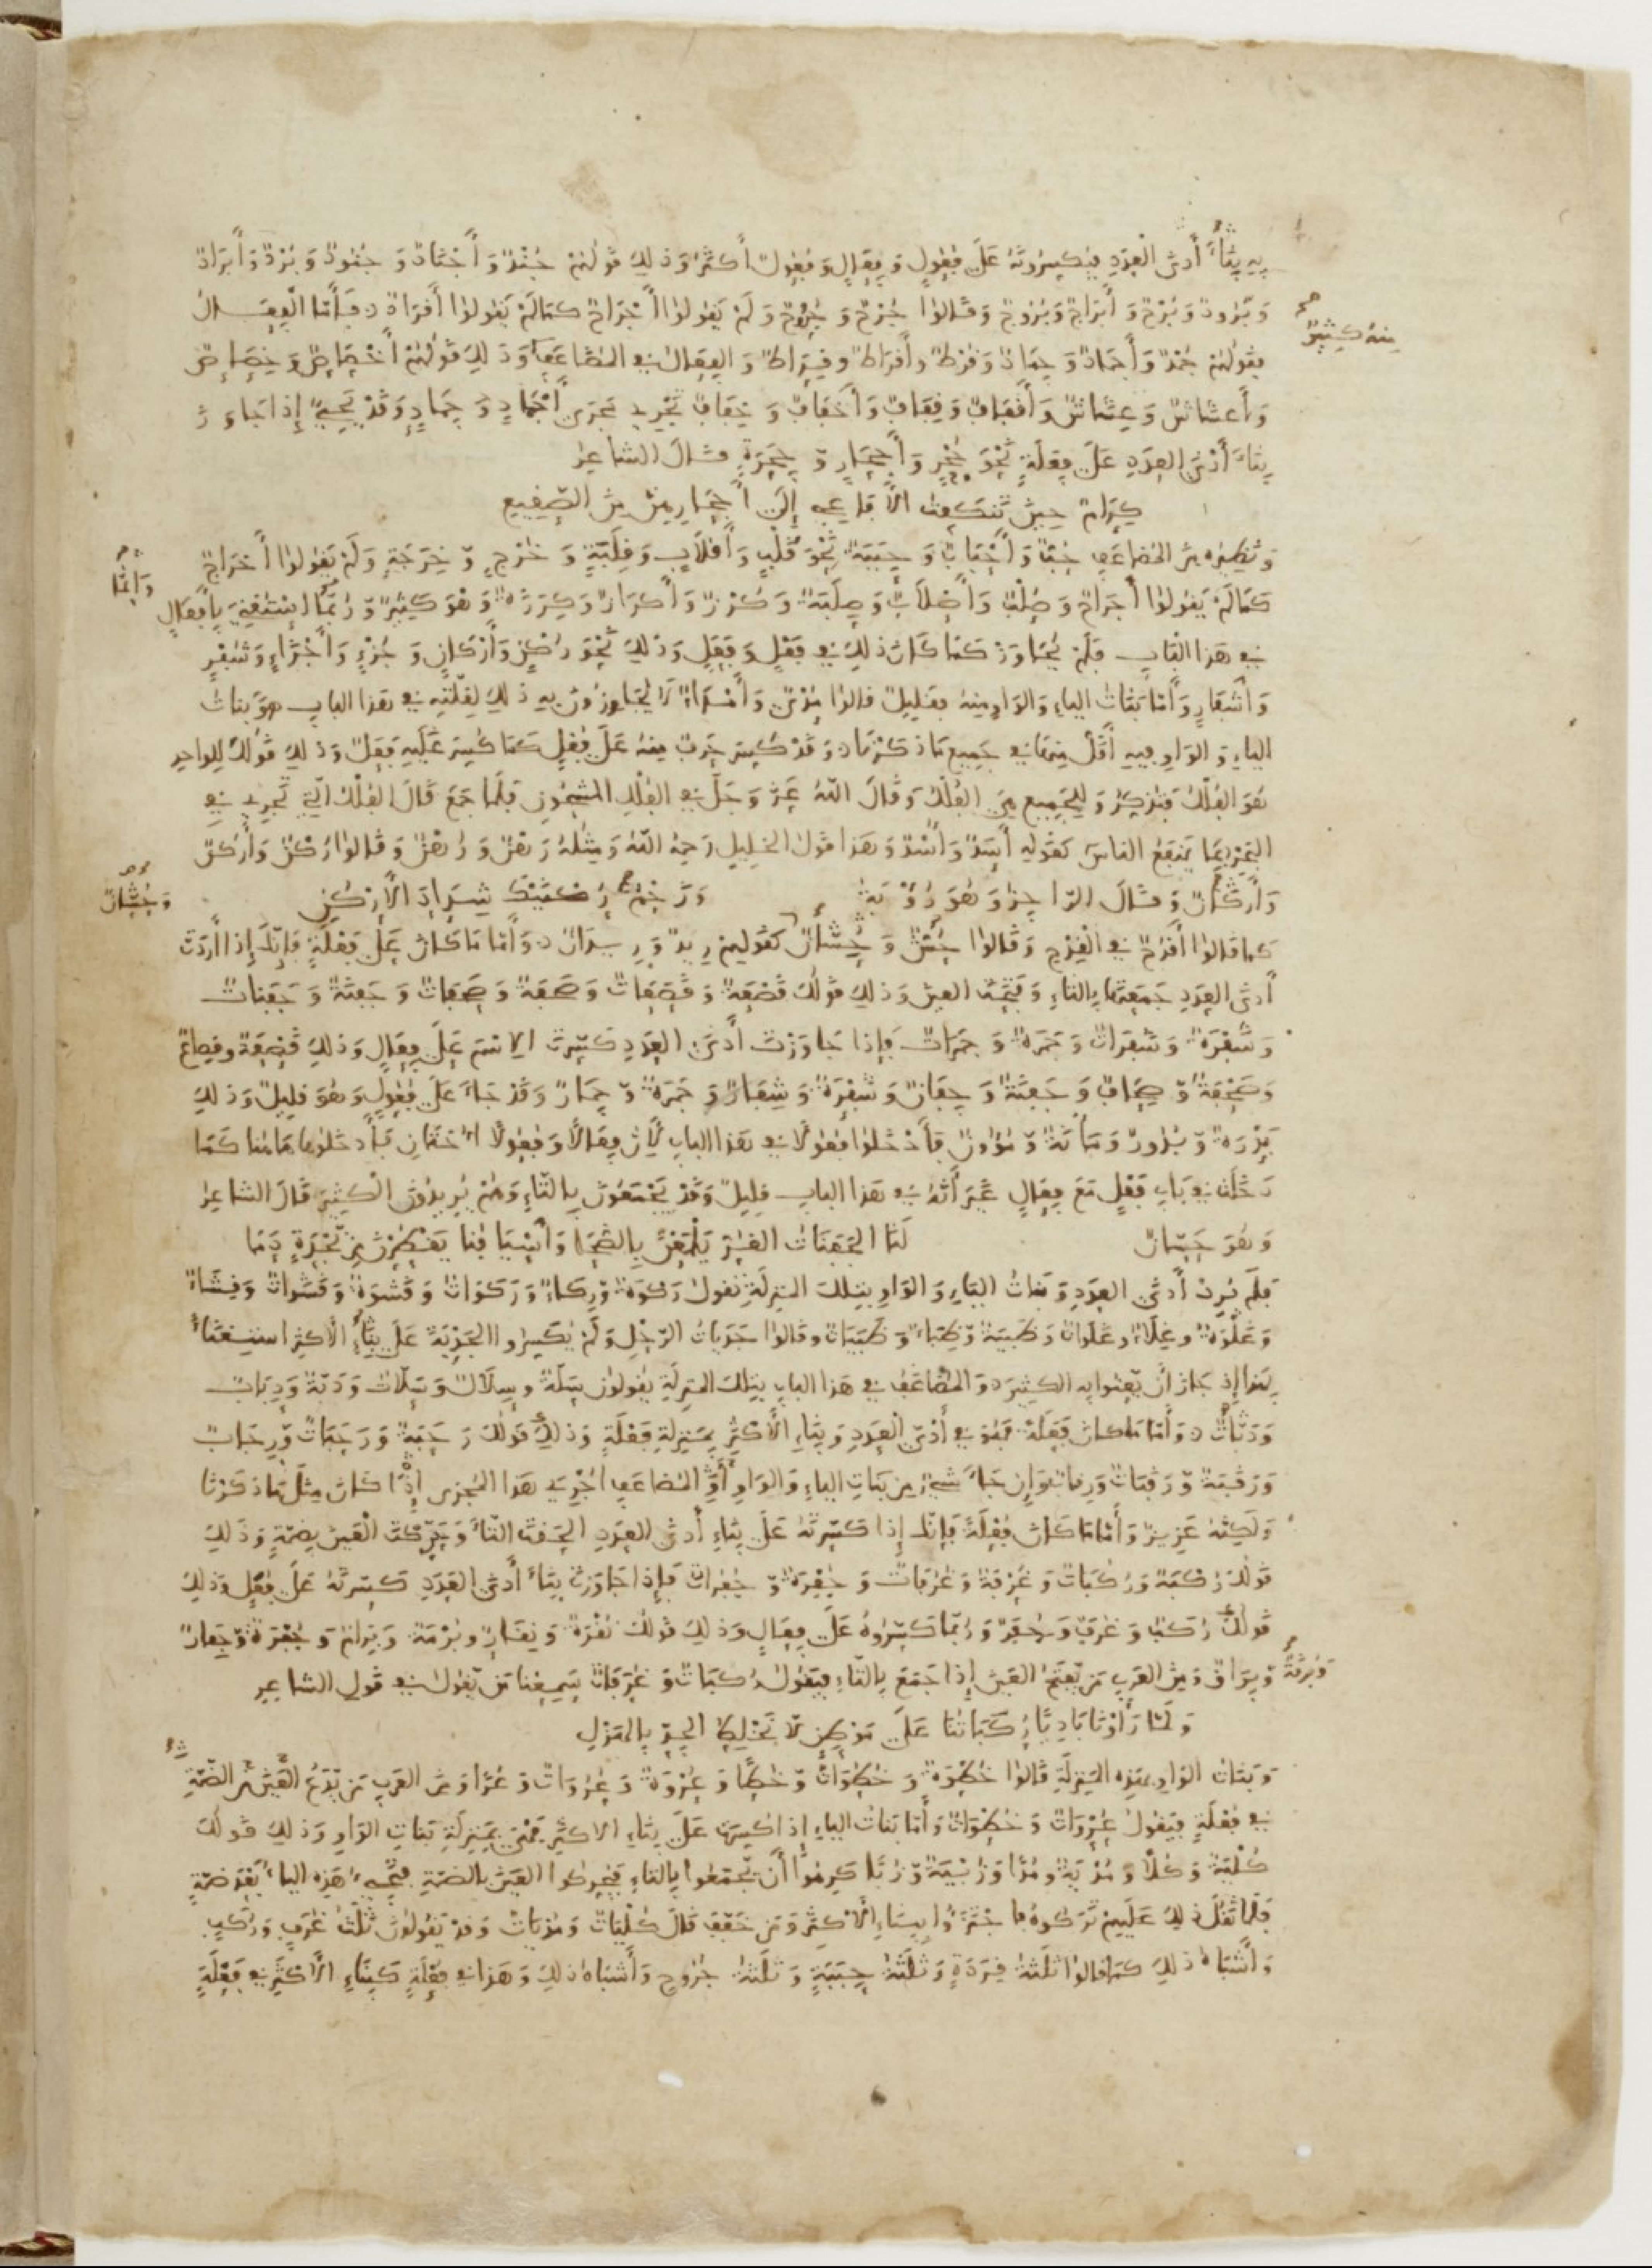 بِهِ بِنَاءَ أَدْنَى الْعَدَدِ فَيُكَسِّرُونَهُ عَلَى فُعُولٍ وَفِعَالٍ وَفُعُولٌ أَكْثَرُ وَذَلِكَ قَوْلُهُمْ جُنْدٌ وَأَجْنَادٌ وَجُنُودٌ وَبُرْدٌ وَأَبْرَادٌ
وَبُرُودٌ وَبُرْجٌ وَأَبْرَاجٌ وَبُرُوجٌ وَقَالُوا جُرْحٌ وَجُرُوحٌ وَلَمْ يَقُولُوا أَجْرَاحٌ كَمَا لَمْ يَقُولُوا أَقْرَادٌ وَأَمَّا الْفِعَالُ
مِنْهُ كَثِيرٌ
فَقَوْلُهُمْ جُمْدٌ وَأَجْمَادٌ وَجِمَادٌ وَقُرْطٌ وَأَقْرَاطٌ وَقِرَاطٌ وَالْفِعَالُ فِي الْمُضَاعَفِ وَذَلِكَ قَوْلُهُمْ أَخْصَاصٌ وَخِصَاصٌ
وَأَعْشَاشٌ وَعِشَاشٌ وَأَقْفَافٌ وَقِفَافٌ وَأَخْفَافٌ وَخِفَافٌ تُجْرِيهِ مَجْرَى أَجْمَادٍ وَجِمَادٍ وَقَدْ يَجِيءُ إِذَا جَاوَزَ
بِنَاءَ أَدْنَى الْعَدَدِ عَلَى فِعَلَةٍ نَحْوَ جُحْرٍ وَأَجْحَارٍ وَجِحَرَةٍ قَالَ الشَّاعِرُ
كِرَامٌ حِينَ تَنْكَفِتُ الْأَفَاعِي إِلَى أَجْحَارِهِنَّ مِنَ الصَّقِيعِ
وَنَظِيرُهُ مِنَ الْمُضَاعَفِ حُبٌّ وَأَحْبَابٌ وَحِبَبَةٌ نَحْوَ قُلْبٍ وَأَقْلَابٍ وَقِلَبَةٍ وَخُرْجٍ وَخِرَجَةٍ وَلَمْ يَقُولُوا أَخْرَاجٌ
كَمَا لَمْ يَقُولُوا أَجْرَاحٌ وَصُلْبٌ وَأَصْلَابٌ وَصِلَبَةٌ وَكُرْزٌ وَأَكْرَازٌ وَكِرَزَةٌ وَهُوَ كَثِيرٌ وَرُبَّمَا اسْتُغْنِيَ بِأَفْعَالٍ
فِي هَذَا الْبَابِ فَلَمْ يُجَاوَزْ كَمَا كَانَ ذَلِكَ فِي فَعْلٍ وَفَعَلٍ وَذَلِكَ نَحْوَ رُكْنٍ وَأَرْكَانٍ وَجُزْءٍ وَأَجْزَاءٍ وَشُفْرٍ
وَأَشْفَارٍ وَأَمَّا بَنَاتُ الْيَاءِ وَالْوَاوِ مِنْهُ فَقَلِيلٌ قَالُوا مُدْيٌ وَأَمْدَاءٌ لَا يُجَاوِزُونَ بِهِ ذَلِكَ لِقِلَّتِهِ فِي هَذَا الْبَابِ هُوَ بَنَاتُ
الْيَاءِ وَالْوَاوِ فِيهِ أَقَلُّ مِنْهَا فِي جَمِيعِ مَا ذَكَرْنَا وَقَدْ كُسِّرَ حَرْفٌ مِنْهُ عَلَى فُعْلٍ كَمَا كُسِّرَ عَلَيْهِ فَعَلٌ وَذَلِكَ قَوْلُكَ لِلْوَاحِدِ
هُوَ الْفُلْكُ فَتُذَكِّرُ وَلِلْجَمِيعِ هِيَ الْفُلْكُ وَقَالَ اللَّهُ عَزَّ وَجَلَّ فِي الْفُلْكِ الْمَشْحُونِ فَلَمَّا جَمَعَ قَالَ الْفُلْكِ الَّتِي تَجْرِي فِي
الْبَحْرِ بِمَا يَنْفَعُ النَّاسَ كَقَوْلِهِ أَسَدٌ وَأُسْدٌ وَهَذَا قَوْلُ الْخَلِيلِ رَحِمَهُ اللَّهُ وَمِثْلُهُ رَهْنٌ وَرُهُنٌ وَقَالُوا رُكْنٌ وَأَرْكُنٌ
وَأَرْكَانٌ وَقَالَ الرَّاجِزُ وَهُوَ رُؤْبَةُ وَزَحْمُ رُكْنَيْكَ شِدَادَ الْأَرْكُنِ
كَمَا قَالُوا أَقْدَحٌ فِي الْقِدْحِ وَقَالُوا حُشٌّ وَحِشَّانٌ كَقَوْلِهِمْ رِئْدٌ وَرِئْدَانٌ وَأَمَّا مَا كَانَ عَلَى فَعْلَةٍ فَإِنَّكَ إِذَا أَرَدْتَ
وَحُشَّانٌ
أَدْنَى الْعَدَدِ جَمَعْتَهَا بِالتَّاءِ وَفَتَحْتَ الْعَيْنَ وَذَلِكَ قَوْلُكَ قَصْعَةٌ وَقَصَعَاتٌ وَصَحْفَةٌ وَصَحَفَاتٌ وَجَفْنَةٌ وَجَفَنَاتٌ
وَشَفْرَةٌ وَشَفَرَاتٌ وَجَمْرَةٌ وَجَمَرَاتٌ فَإِذَا جَاوَزْتَ أَدْنَى الْعَدَدِ كَسَّرْتَ الِاسْمَ عَلَى فِعَالٍ وَذَلِكَ قَصْعَةٌ وَقِصَاعٌ
وَصَحْفَةٌ وَصِحَافٌ وَجَفْنَةٌ وَجِفَانٌ وَشَفْرَةٌ وَشِفَارٌ وَجَمْرَةٌ وَجِمَارٌ وَقَدْ جَاءَ عَلَى فُعُولٍ وَهُوَ قَلِيلٌ وَذَلِكَ
بَدْرَةٌ وَبُدُورٌ وَمَأْنَةٌ وَمُؤُونٌ فَأَدْخَلُوا فُعُولًا فِي هَذَا الْبَابِ لِأَنَّ فِعَالًا وَفُعُولًا أُخْتَانِ فَأَدْخَلُوهَا هَاهُنَا كَمَا
دَخَلَتْ فِي بَابِ فَعْلٍ مَعَ فِعَالٍ غَيْرَ أَنَّهُ فِي هَذَا الْبَابِ قَلِيلٌ وَقَدْ يَجْمَعُونَ بِالتَّاءِ وَهُمْ يُرِيدُونَ الْكَثِيرَ قَالَ الشَّاعِرُ
وَهُوَ حَسَّانُ لَنَا الْجَفَنَاتُ الْغُرُّ يَلْمَعْنَ بِالضُّحَى وَأَسْيَافُنَا يَقْطُرْنَ مِنْ نَجْدَةٍ دَمَا
فَلَمْ يُرِدْ أَدْنَى الْعَدَدِ وَبَنَاتُ الْيَاءِ وَالْوَاوِ بِتِلْكَ الْمَنْزِلَةِ تَقُولُ رَكْوَةٌ وَرِكَاءٌ وَرَكَوَاتٌ وَقَشْوَةٌ وَقَشَوَاتٌ وَقِشَاءٌ
وَغَلْوَةٌ وَغِلَاءٌ وَغَلَوَاتٌ وَظَبْيَةٌ وَظِبَاءٌ وَظَبَيَاتٌ وَقَالُوا جَدَيَاتُ الرَّحْلِ وَلَمْ يُكَسِّرُوا الْجَدْيَةَ عَلَى بِنَاءِ الْأَكْثَرِ اسْتِغْنَاءً
بِهَذَا إِذْ جَازَ أَنْ يَعْنُوا بِهِ الْكَثِيرَ وَالْمُضَاعَفُ فِي هَذَا الْبَابِ بِتِلْكَ الْمَنْزِلَةِ يَقُولُونَ سَلَّةٌ وَسِلَالٌ وَسَلَّاتٌ وَدَبَّةٌ وَدِبَابٌ
وَدَبَّاتٌ وَأَمَّا مَا كَانَ فَعَلَةً فَهُوَ فِي أَدْنَى الْعَدَدِ وَبِنَاءِ الْأَكْثَرِ بِمَنْزِلَةِ فَعْلَةٍ وَذَلِكَ قَوْلُكَ رَحَبَةٌ وَرَحَبَاتٌ وَرِحَابٌ
وَرَقَبَةٌ وَرَقَبَاتٌ وَرِقَابٌ وَإِنْ جَاءَ شَيْءٌ مِنْ بَنَاتِ الْيَاءِ وَالْوَاوِ أَوِ الْمُضَاعَفِ أُجْرِيَ هَذَا الْمُجْرَى إِذْ كَانَ مِثْلَ مَا ذَكَرْنَا
وَلَكِنَّهُ عَزِيزٌ وَأَمَّا مَا كَانَ فُعْلَةً فَإِنَّكَ إِذَا كَسَّرْتَهُ عَلَى بِنَاءِ أَدْنَى الْعَدَدِ أَلْحَقْتَ التَّاءَ وَحَرَّكْتَ الْعَيْنَ بِضَمَّةٍ وَذَلِكَ
قَوْلُكَ رُكْبَةٌ وَرُكُبَاتٌ وَغُرْفَةٌ وَغُرُفَاتٌ وَجُفْرَةٌ وَجُفُرَاتٌ فَإِذَا جَاوَزْتَ بِنَاءَ أَدْنَى الْعَدَدِ كَسَّرْتَهُ عَلَى فُعَلٍ وَذَلِكَ
قَوْلُكَ رُكَبٌ وَغُرَفٌ وَجُفَرٌ وَرُبَّمَا كَسَّرُوهُ عَلَى فِعَالٍ وَذَلِكَ قَوْلُكَ نُقْرَةٌ وَنِقَارٌ وَبُرْمَةٌ وَبِرَامٌ وَجُفْرَةٌ وَجِفَارٌ
وَبُرْقَةٌ وَبِرَاقٌ وَمِنَ الْعَرَبِ مَنْ يَفْتَحُ الْعَيْنَ إِذَا جَمَعَ بِالتَّاءِ فَيَقُولُ رُكَبَاتٌ وَغُرَفَاتٌ سَمِعْنَا مَنْ يَقُولُ فِي قَوْلِ الشَّاعِرِ
وَلَمَّا رَأَوْنَا بَادِيًا رُكَبَاتُنَا عَلَى مَوْطِنٍ لَا نَخْلِطُ الْجِدَّ بِالْهَزْلِ
وَبَنَاتُ الْوَاوِ بِهَذِهِ الْمَنْزِلَةِ قَالُوا خُطْوَةٌ وَخُطُوَاتٌ وَخُطًا وَعُرْوَةٌ وَعُرُوَاتٌ وَعُرًا وَمِنَ الْعَرَبِ مَنْ يَدَعُ الْعَيْنَ مِنَ الضَّمَّةِ
فِي فُعْلَةٍ فَيَقُولُ عُرْوَاتٌ وَخُطْوَاتٌ وَأَمَّا بَنَاتُ الْيَاءِ إِذَا كُسِّرَتْ عَلَى بِنَاءِ الْأَكْثَرِ فَهِيَ بِمَنْزِلَةِ بَنَاتِ الْوَاوِ وَذَلِكَ قَوْلُكَ
كُلْيَةٌ وَكُلًا وَمُدْيَةٌ وَمُدًا وَزُبْيَةٌ وَزُبًا كَرِهُوا أَنْ يَجْمَعُوا بِالتَّاءِ فَيُحَرِّكُوا الْعَيْنَ بِالضَّمَّةِ فَتَجِيءُ هَذِهِ الْيَاءُ بَعْدَ ضَمَّةٍ
فَلَمَّا ثَقُلَ ذَلِكَ عَلَيْهِمْ تَرَكُوهُ وَاجْتَزَءُوا بِبِنَاءِ الْأَكْثَرِ وَمَنْ خَفَّفَ قَالَ كُلْيَاتٌ وَمُدْيَاتٌ وَقَدْ يَقُولُونَ ثَلَثُ غُرَفٍ وَرُكَبٍ
وَأَشْبَاهُ ذَلِكَ كَمَا قَالُوا ثَلَثَةُ قِرَدَةٍ وَثَلَثَةُ حِبَبَةٍ وَثَلَثَةُ جُرُوحٍ وَأَشْبَاهُ ذَلِكَ وَهَذَا فِي فُعْلَةٍ كَبِنَاءِ الْأَكْثَرِ فِي فَعْلَةٍ